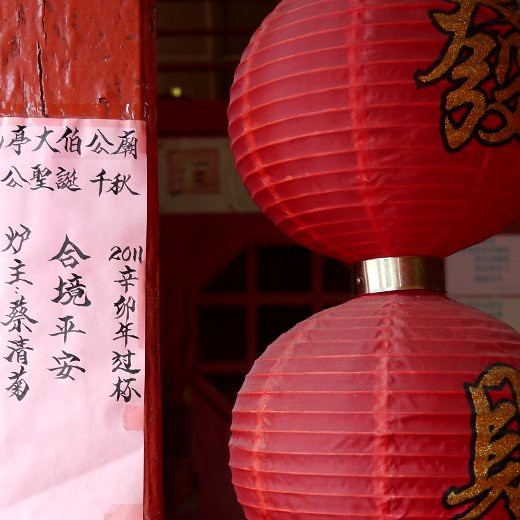 亭大伯公廟
公聖誕 千秋
2011辛卯年过杯
合境平安
炉主:蔡清菊
發